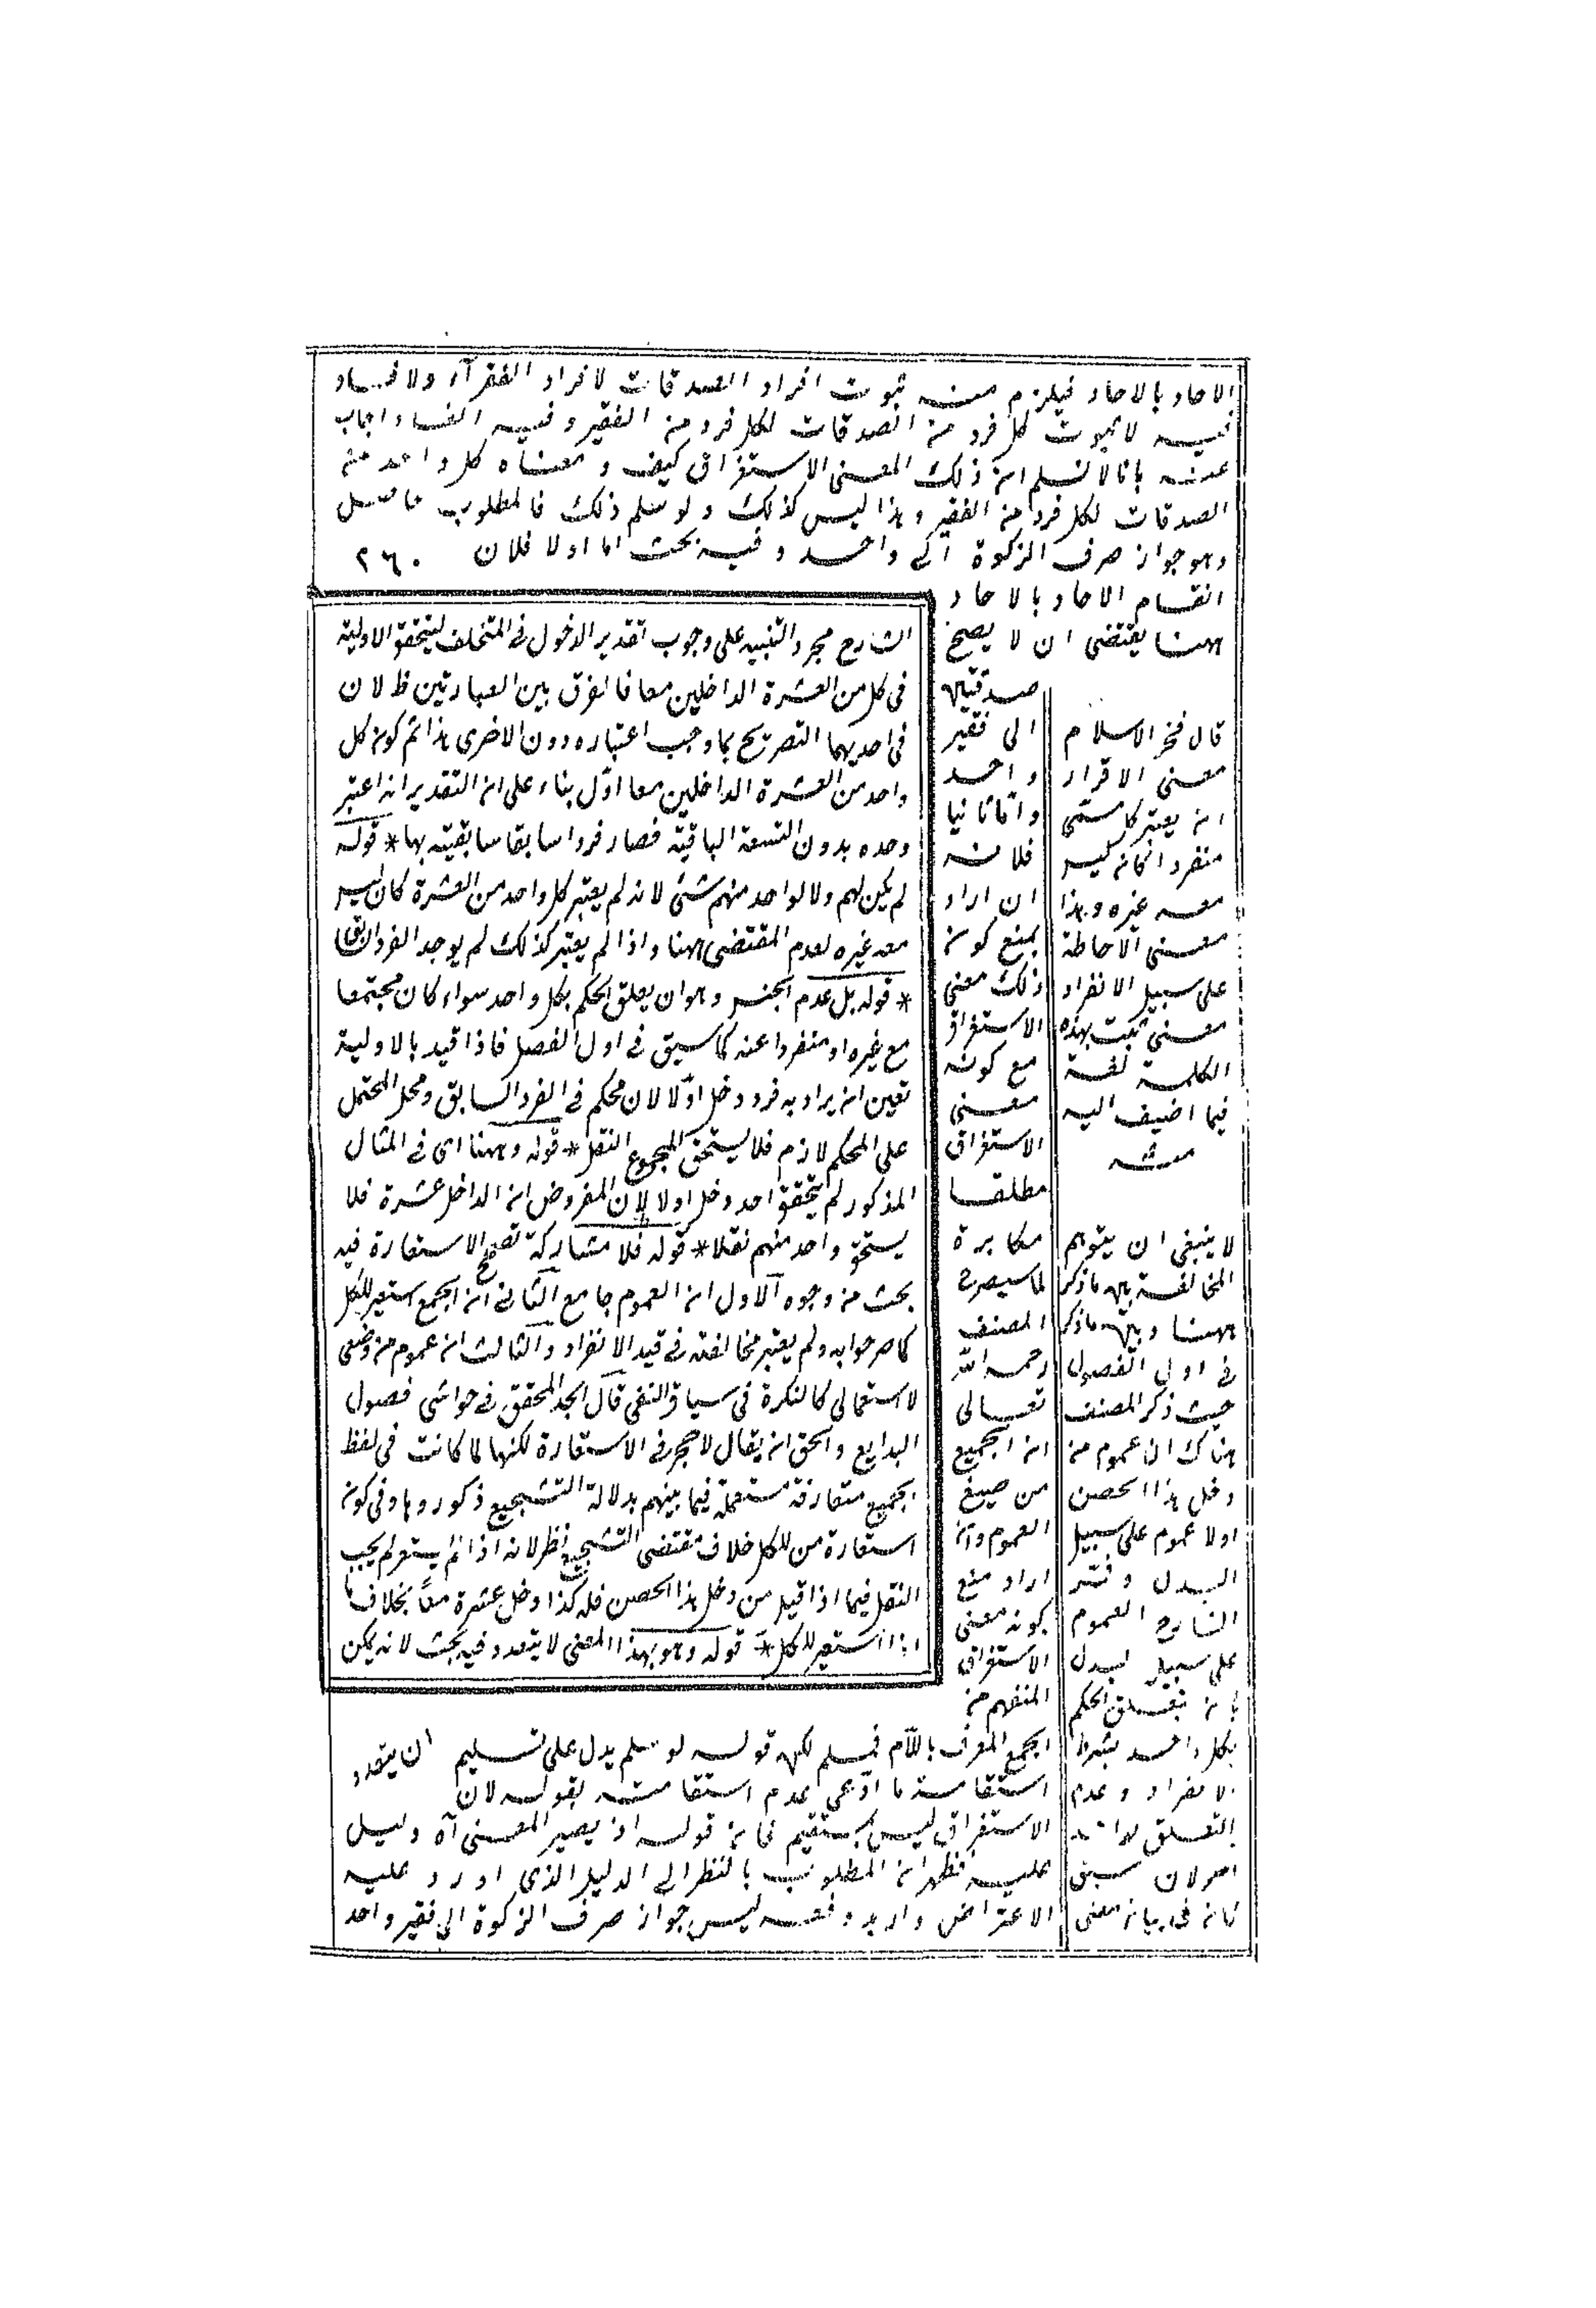 الاحاد بالاحاد فيلزم منه ثبوت افراد الصدقات لافراد الفقرآء ولا فساد
فيه لا ثبوت كل فرد من الصدقات لكل فرد من الفقير وفيه الفساد اجاب
عنه بانا لا نسلم ان ذلك المعنى الاستغراق كيف ومعناه كل واحد من
الصدقات لكل فرد من الفقير وهذا ليس كذلك ولو سلم ذلك فالمطلوب حاصل
وهو جواز صرف الزكوة الى واحد وفيه بحث اما اولا فلان
٢٦٠
انقسام الاحاد بالاحاد
ههنا يقتضى ان لا يصح
صدقتها
الى فقير
واحد
واما ثانيا
فلانه
ان اراد
بمنع كونه
ذلك معنى
الاستغراق
مع كونه
معنى
الاستغراق
مطلقا
مكابرة
لما سيصرح
المصنف
رحمه الله
تعالى
ان الجميع
من صيغ
العموم وان
اراد منع
كونه معنى
الاستغراق
المنفهم من
الجمع المعرف باللام فمسلم لكن قوله لو سلم يدل على تسليم
استقامة ما ادعى عدم استقامته بقوله لان
الاستغراق ليس بمستقيم فان قوله اذ يصير المعنى آه دليل
عليه فظهر ان المطلوب بالنظر الى الدليل الذى اورد عليه
الاعتراض واريد دفعه ليس جواز صرف الزكوة الى فقير واحد
الشارح مجرد التنبيه على وجوب تقدير الدخول فى المتخلف ليتحقق الاولية
فى كل من العشرة الداخلين معا فالفرق بين العبارتين ظ لان
فى احديهما التصريح بما وجب اعتباره دون الاخرى هذا ثم كون كل
واحد من العشرة الداخلين معا اول بناء على ان التقدير انه اعتبر
وحده بدون التسعة الباقية فصار فردا سابقا سابقيته بها * قوله
لم يكن لهم ولا لواحد منهم شئ لانه لم يعتبر كل واحد من العشرة كان ليس
معه غيره لعدم المقتضى ههنا واذا لم يعتبر كذلك لم يوجد الفرد السابق
* قوله بل عدم الجنس وهو ان يعلق الحكم بكل واحد سواء كان مجتمعا
مع غيره او منفردا عنه كما سبق فى اول الفصل فاذا قيد بالاولية
تعين ان يراد به فرد دخل اولا لان محكم فى الفرد السابق ومحل المحتمل
على المحكم لازم فلا يستحق المجموع النفل * قوله وههنا اى فى المثال
المذكور لم يتحقق احد دخل اولا لان المفروض ان الداخل عشرة فلا
يستحق واحد منهم نفلا * قوله فلا مشاركة تصحح الاستعارة فيه
بحث من وجوه الاول ان العموم جامع الثانى ان الجمع استعير للكل
كما صر جوابه ولم يعتبر مخالفته فى قيد الانفراد والثالث ان عموم من وضعى
لا استعمالى كالنكرة فى سياق النفى قال الجد المحقق فى حواشى فصول
البدايع والحق ان يقال لا حجر فى الاستعارة لكنها لما كانت فى لفظ
الجميع متعارفة مستعملة فيما بينهم بدلالة التشجيع ذكوروها وفى كونه
استعارة من للكل خلاف مقتضى التشجيع نظر لانه اذا لم يستعر لم يجب
النفل فيما اذا قيل من دخل هذا الحصن فله كذا ودخل عشرة معا بخلاف ما
اذا استعير للكل * قوله وهو بهذا المعنى لا يتعدد فيه بحث لانه يمكن
ان يتعدد
قال فخر الاسلام
معنى الافراد
ان يعتبر كل مسمى
منفردا كان ليس
معه غيره وهذا
معنى الاحاطة
على سبيل الانفراد
معنى ثبت بهذه
الكلمة لغة
فيما اضيف اليه
منه
لا ينبغى ان يتوهم
المخالفة بين ما ذكر
ههنا وبين ما ذكر
فى اول الفصول
حيث ذكر المصنف
هناك ان عموم من
دخل هذا الحصن
اولا عموم على سبيل
البدل وفسر
الشارح العموم
على سبيل البدل
بان يتعلق الحكم
بكل واحد بشرط
الانفراد وعدم
التعلق لواحد
اخر لان سبق
كان فى بيان معنى